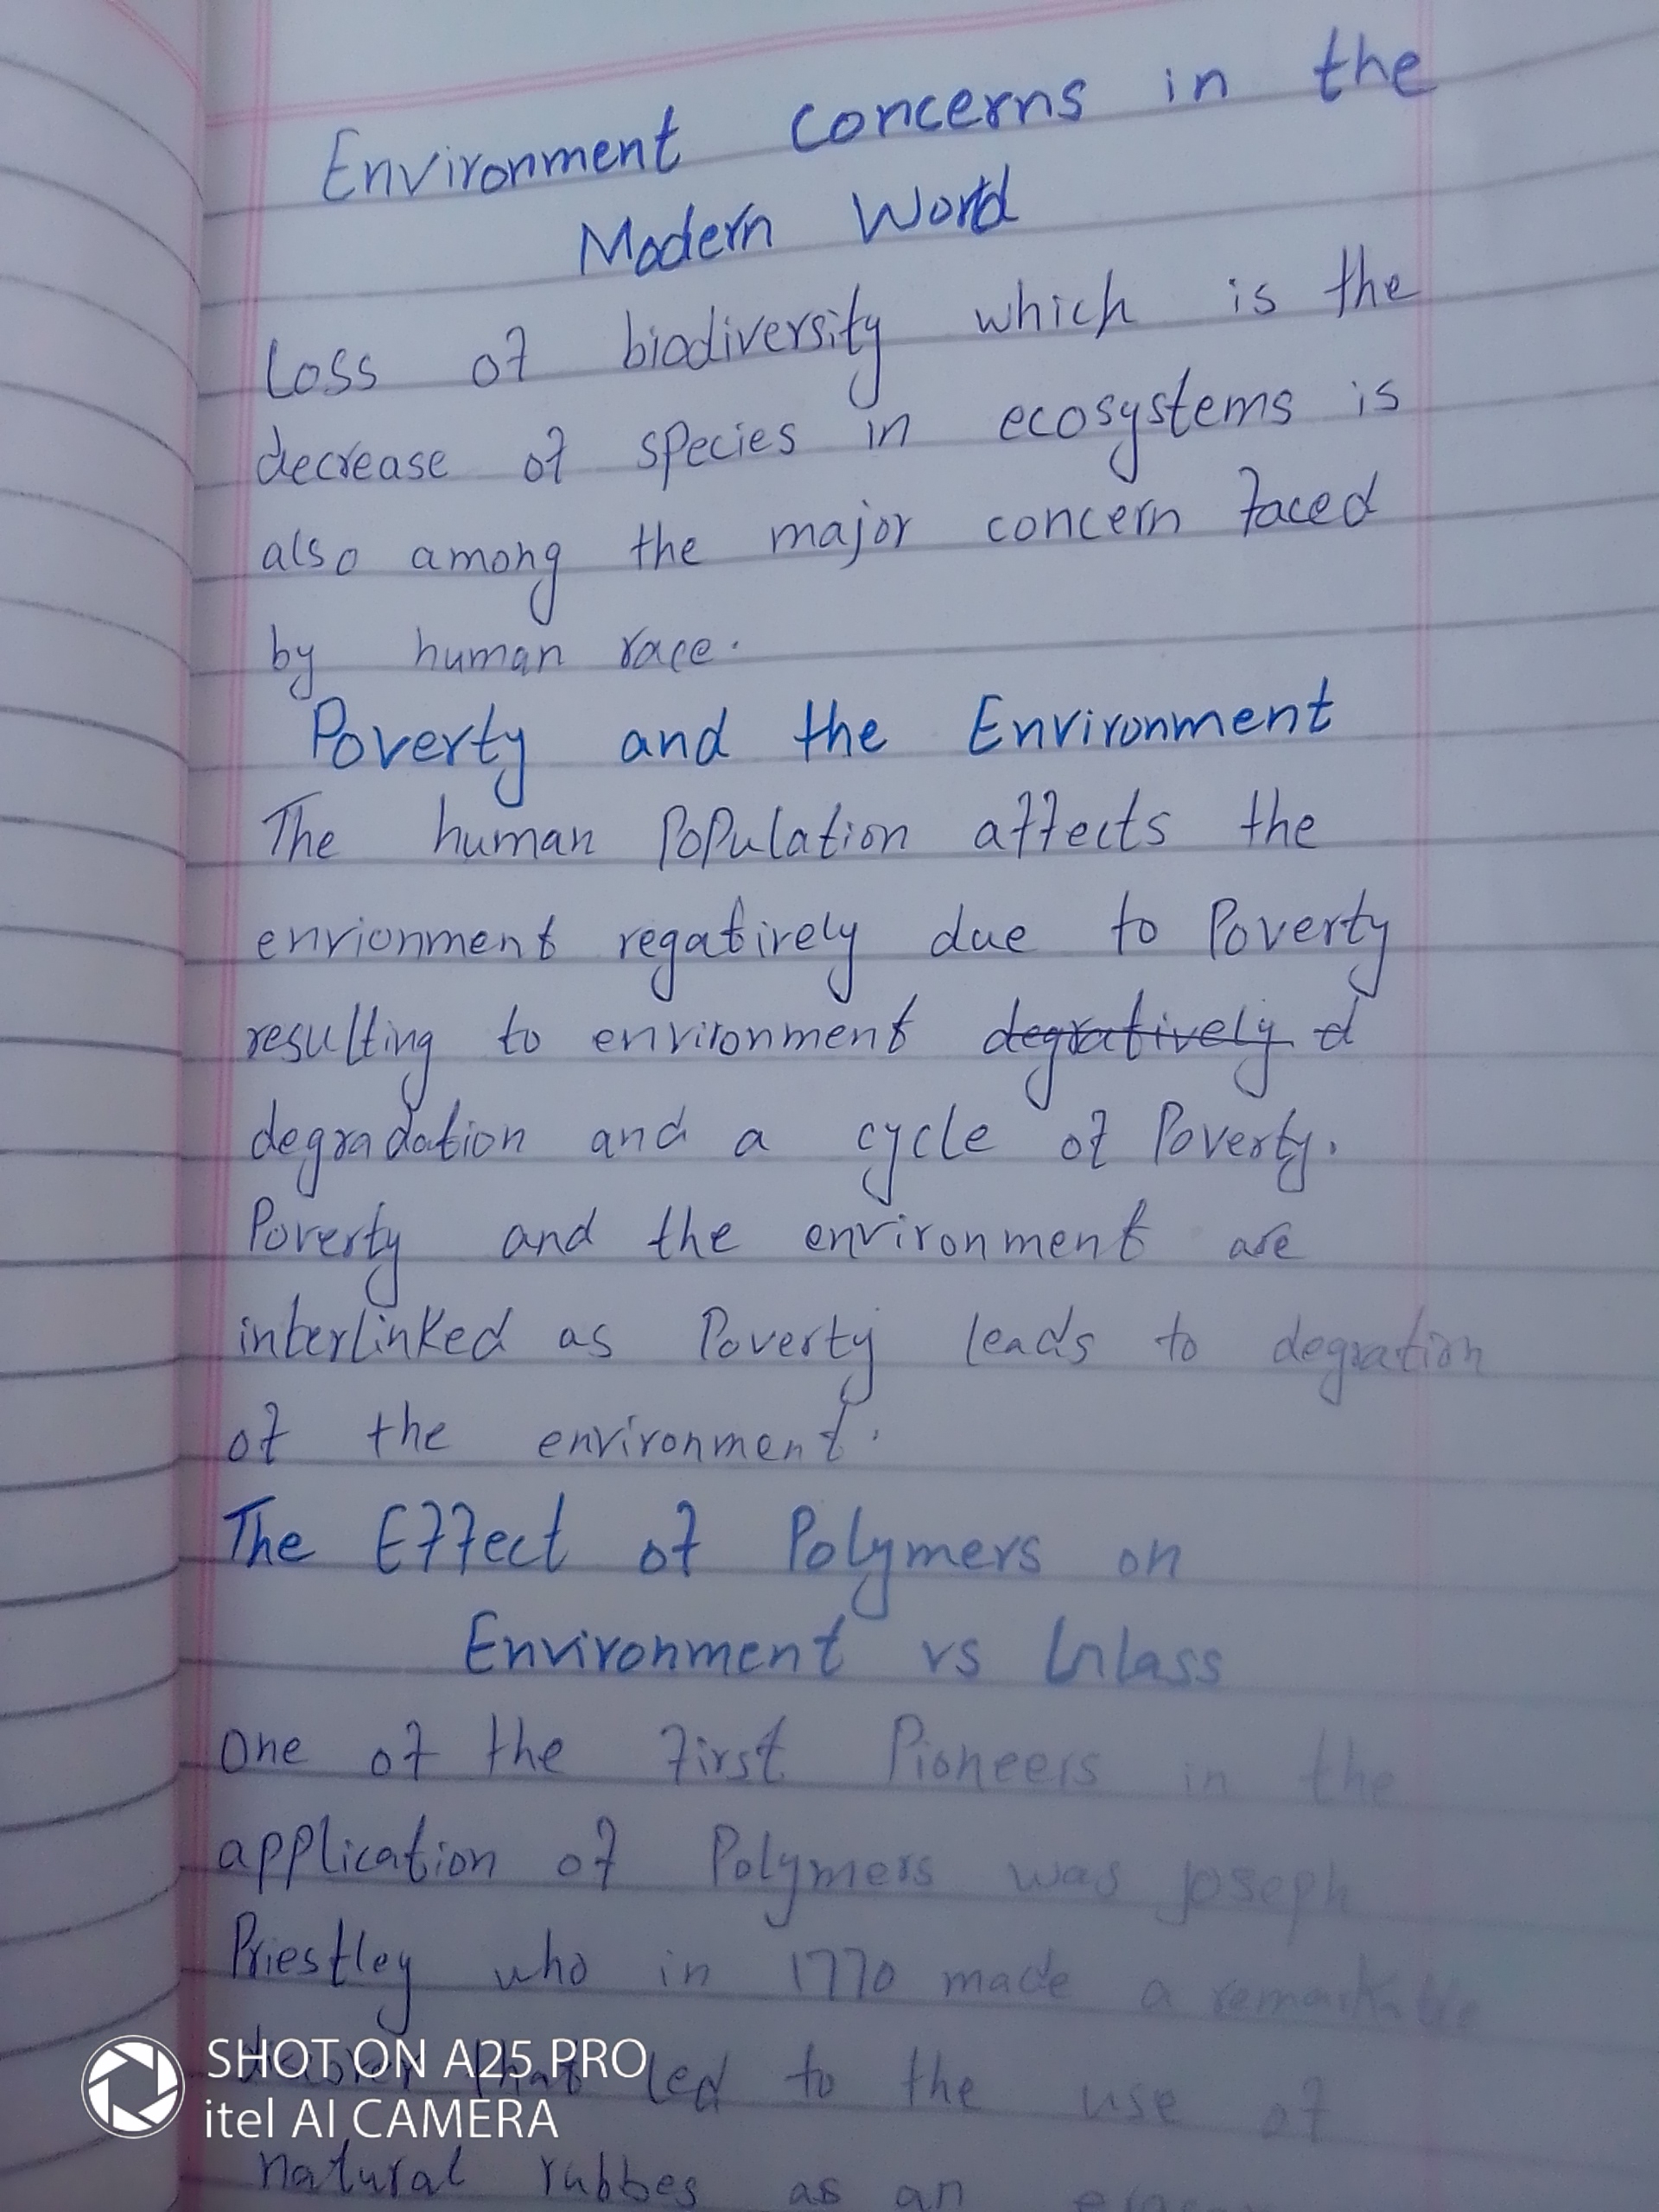 Environment concerns in the
Modern World
Loss of biodiversity which is the
decrease of species in ecosystems is
also among the major concern faced
by human race.
Poverty and the Environment
The human Population affects the
envrionment regatively due to Poverty
resulting to environment degratively d
degradation and a cycle of Poverty.
Poverty and the environment are
interlinked as Poverty leads to degration
of the environment.
The Effect of Polymers on
Environment vs Glass
One of the first Pioneers in the
application of Polymers was Joseph
Priestley who in 1770 made a remarkable
that led to the use of
natural rubbes as an
SHOT ON A25 PRO
itel AI CAMERA